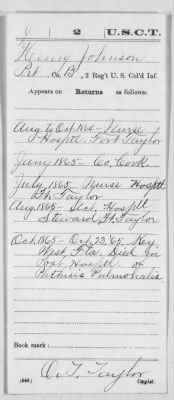 J 2 U.S.C.T.
Henry Johnson
Pvt, Co. B, 2 Reg't U. S. Col'd Inf.
Appears on
Returns as follows:
Aug to Oct 1864 - Nurse
Hosptl. Fort Taylor
Jany 1865 - Co. Cook
July 1865 - Nurse Hosptl
Ft. Taylor
Aug 1865 - Act. Hosptl
Steward Ft. Taylor
Oct. 1865 - Oct. 22. '65. Key
West, Fla. Died in
Post Hosptl of
Pthisis Pulmonalis.
Book mark:
(546) O. T. Taylor
Copyist.